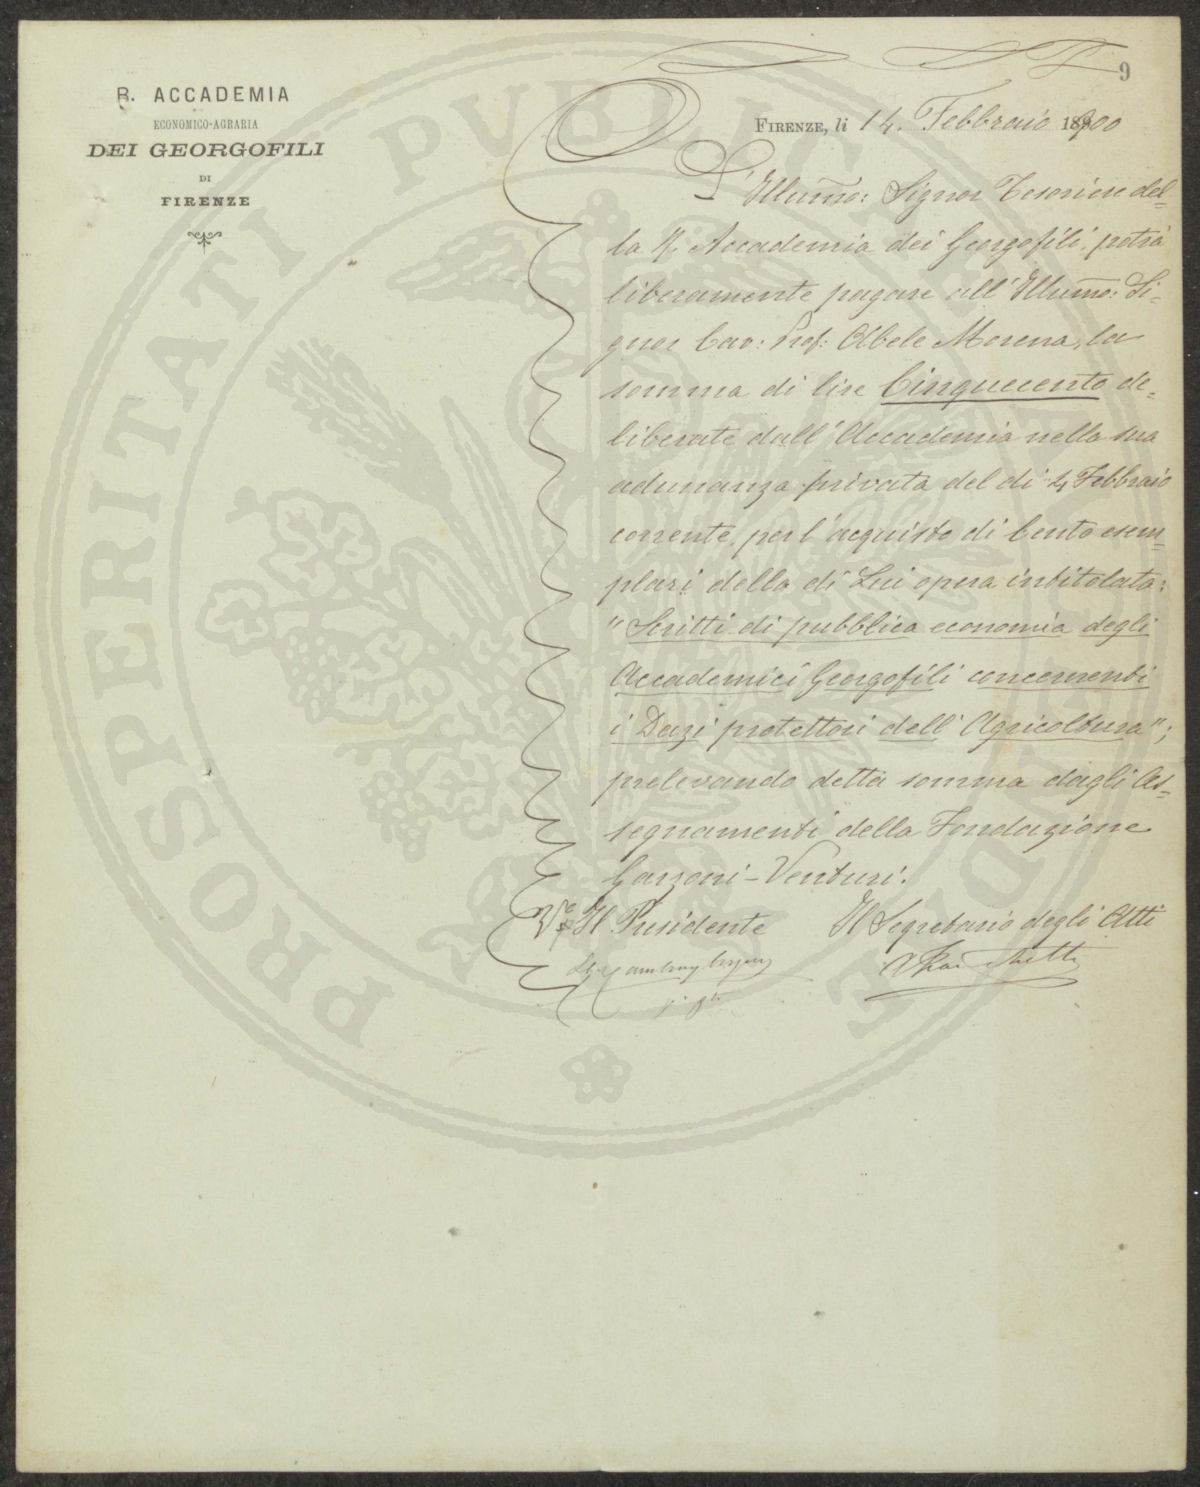 9
R. ACCADEMIA
ECONOMICO-AGRARIA
DEI GEORGOFILI
DI
FIRENZE
FIRENZE, li 14. Febbraio 1900
L'Illumo: Signor Tesoriere del=
la R. Accademia dei Georgofili, potrà
liberamente pagare all'Illumo: Si-
gnor Cav: Prof: Abele Morena, la
somma di lire Cinquecento de-
liberate dall'Accademia nella sua
adunanza privata del di 4 Febbraio
corrente, per l'acquisto di Cento esem=
plari della di Lui opera intitolata:
"Scritti di pubblica economia degli
Accademici Georgofili concernenti
i Dazi protettori dell'Agricoltura";
prelevando detta somma dagli As=
segnamenti della Fondazione
Garzoni-Venturi.
Vo Il Presidente
Il Segretario degli Atti
PROSPERITATI PUBLICAE